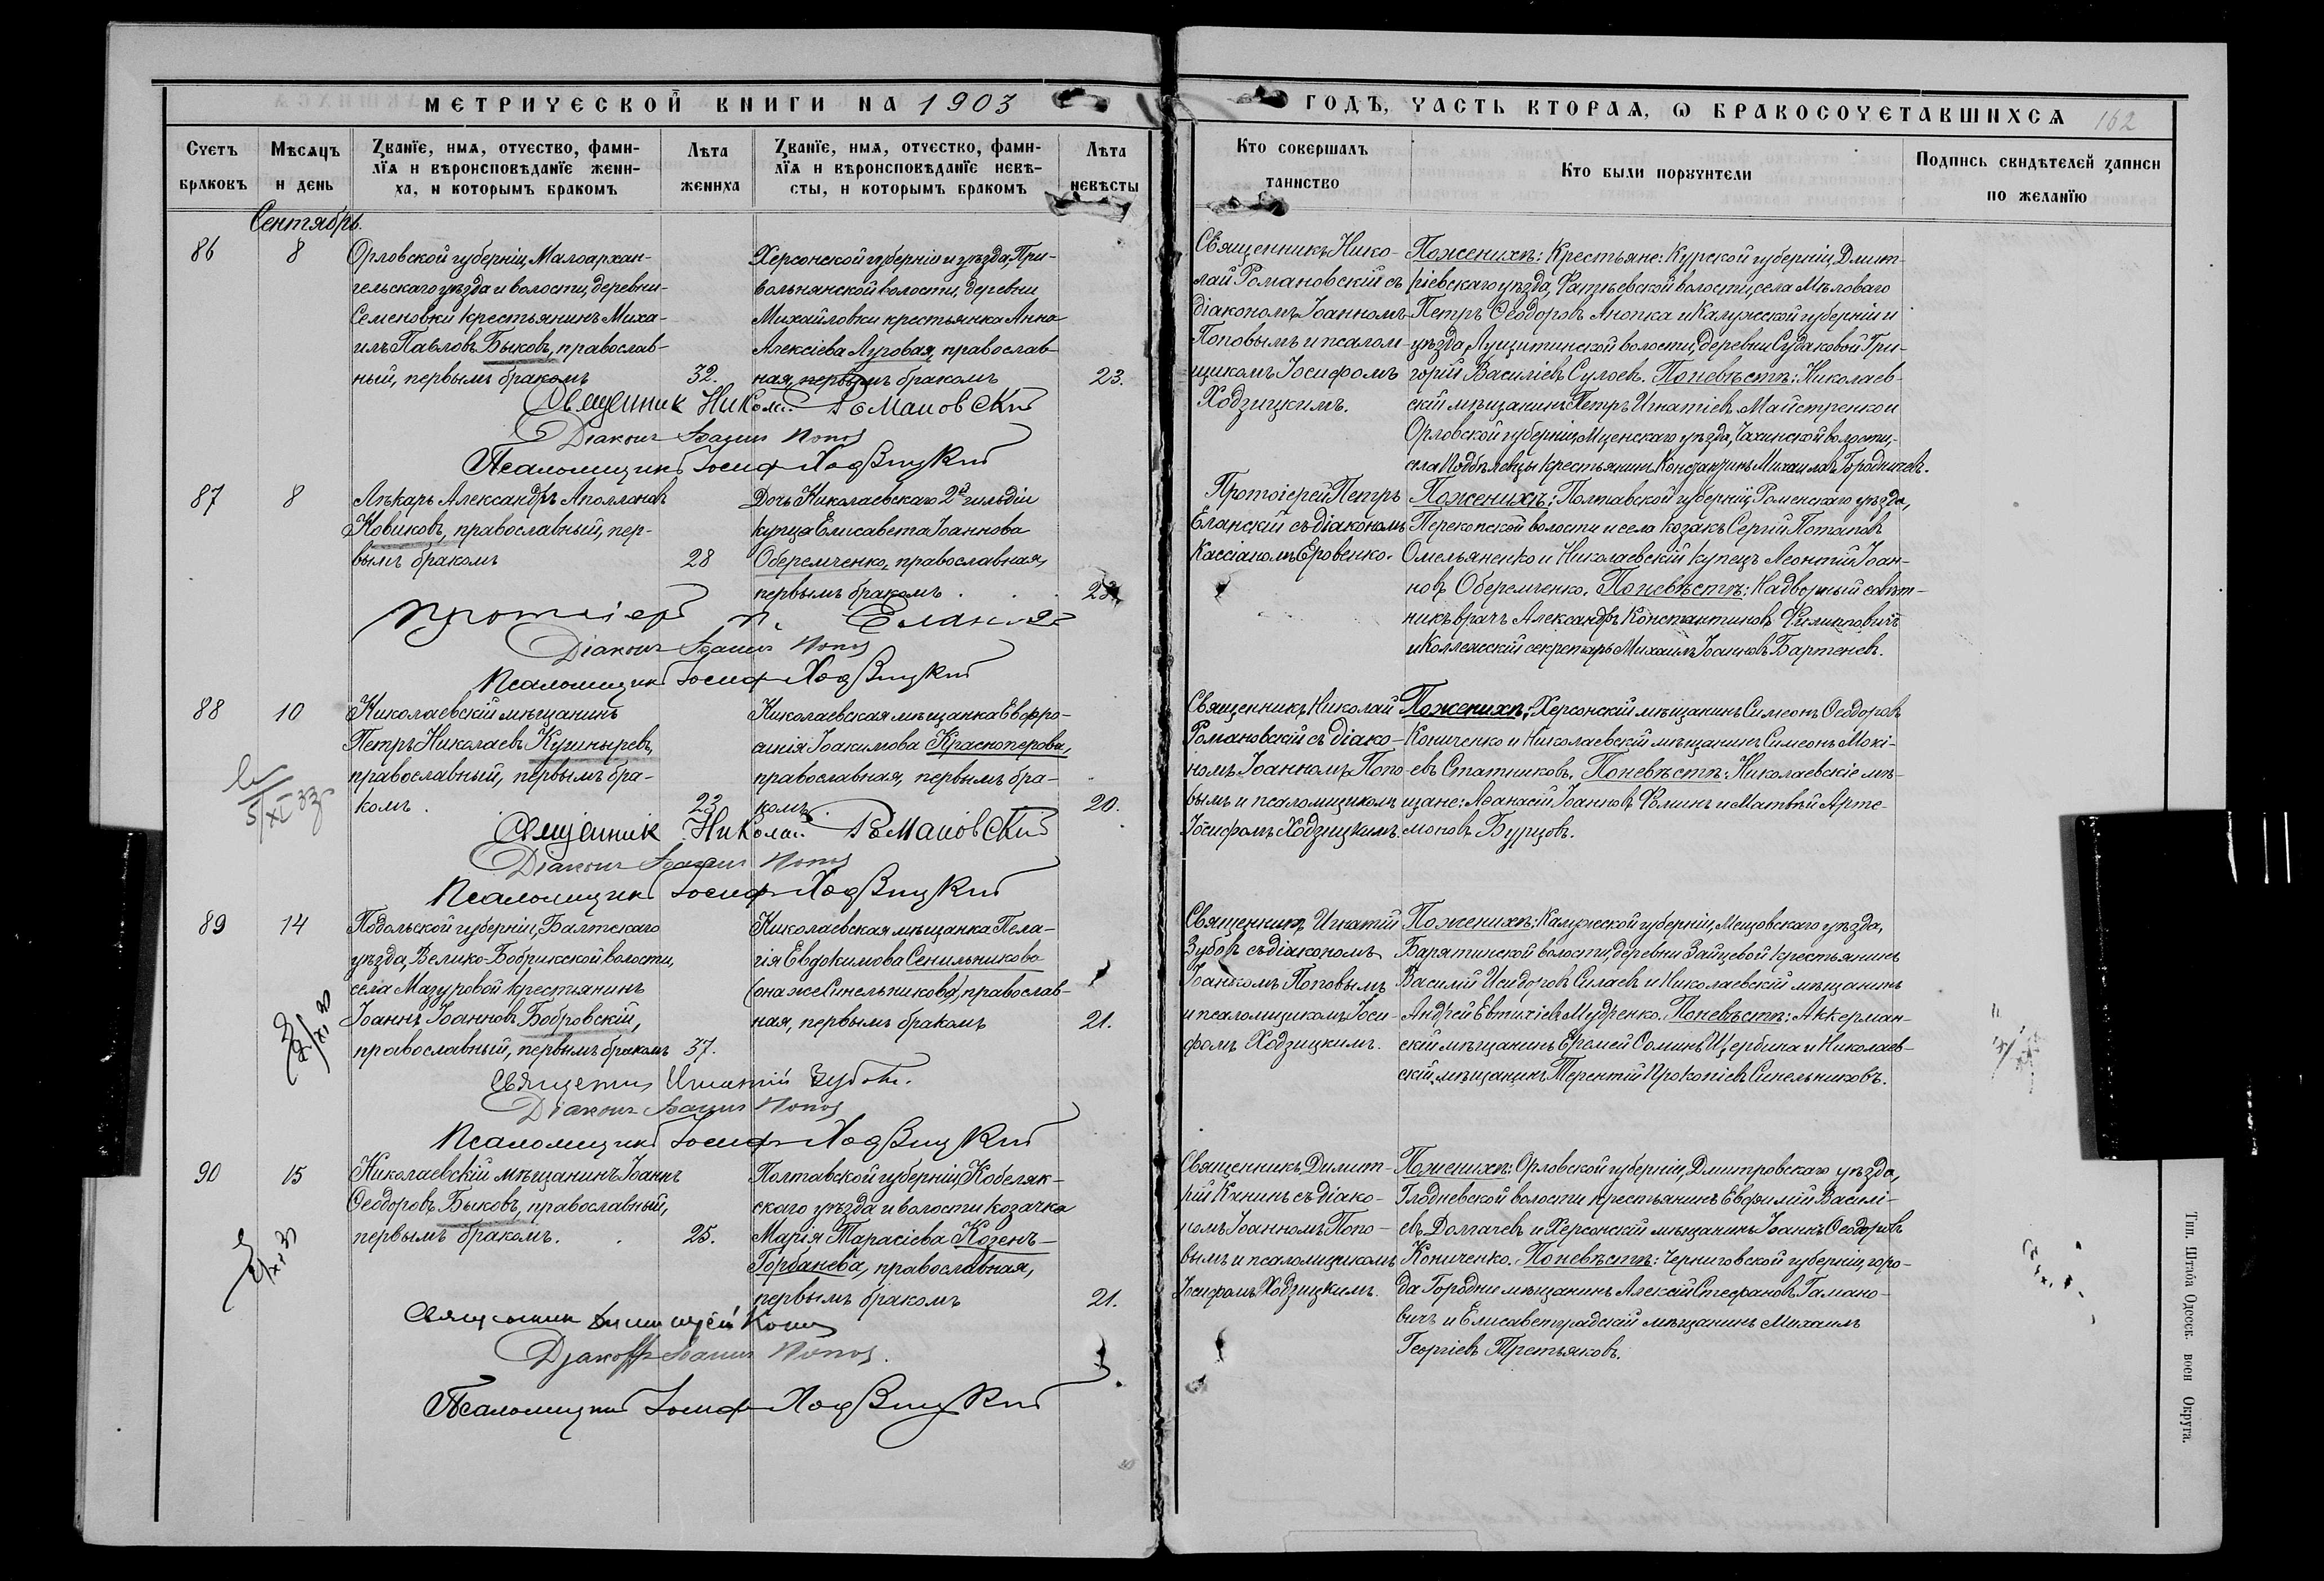 МЕТРИЧЕСКОЙ КНИГИ НА 1903
ГОДЪ, ЧАСТЬ ВТОРАѦ, Ѡ БРАКОСОЧЕТАВШИХСѦ 162
Счетъ браковъ
Мѣсѧцъ и день
Званїе, имѧ, отчество, фами-
лїѧ и вѣроисповѣданїе жени-
ха, и которымъ бракомъ
Лѣта жениха
Званїе, имѧ, отчество, фами-
лїѧ и вѣроисповѣданїе невѣ-
сты, и которымъ бракомъ
Лѣта невѣсты
Кто совершалъ таинство
Кто были порꙋчители
Подпись свидѣтелей записи по желанїю
Сентябрь.
86
8
Орловской губерніи, Малоархан-
гельскаго уѣзда и волости, деревни
Семеновки крестьянинъ Миха-
илъ Павловъ Быковъ, православ-
ный, первымъ бракомъ
32.
Херсонской губерніи и уѣзда, При-
вольнянской волости, деревни
Михайловки крестьянка Анна
Алексіева Луговая, православ-
ная, первымъ бракомъ
23.
Священникъ Нико-
лай Романовскій съ
діакономъ Іоанномъ
Поповымъ и псалом-
щикомъ Іосифомъ
Ходзицкимъ.
По женихѣ: Крестьяне: Курской губерніи, Дмит-
ріевскаго уѣзда, Фатѣевской волости, села Мѣловаго
Петръ Ѳеодоровъ Анопка и Калужской губерніи и
уѣзда, волости, деревни Судаковой Гри-
горій Василіевъ Сулоев. По невѣстѣ: Николаев-
скій мѣщанинъ Петръ Игнатіевъ Майстренко и
Орловской губерніи, Мценскаго уѣзда, волости,
села крестьянинъ Михаиловъ Городничевъ.
Священник Николай Романовский
Діаконъ Іоаннъ Попов
Псаломщикъ Іосиф Ходзицкій
87
8
Лѣкарь Александръ Аполлоновъ
Новиковъ, православный, пер-
вымъ бракомъ
28
Дочь Николаевскаго 2й гильдіи
купца Елисавета Іоаннова
Оберемченко, православная,
первымъ бракомъ
Протоіерей Петръ
Еланскій съ діакономъ
Кассіаномъ Еровенко.
По женихѣ: Полтавской губерніи, Роменскаго уѣзда,
Перекопской волости и села козакъ Сергій Потаповъ
Омельяненко и Николаевскій купецъ Леонтій Іоан-
новъ Оберемченко. По невѣстѣ: Надворный совѣт-
никъ врачъ Александръ Константиновъ Филипповичъ
и Коллежскій секретарь Михаилъ Іоанновъ Бартеневъ.
Протоіерей П. Еланскій
Діаконъ Іоаннъ Попов
Псаломщикъ Іосиф Ходзицкій
88
10
Николаевскій мѣщанинъ
Петръ Николаевъ Кушныревъ,
православный, первымъ бра-
комъ.
23
Николаевская мѣщанка Евфро-
синія Іоакимова Красноперова,
православная, первымъ бра-
комъ.
20.
Священникъ Николай
Романовскій съ діако-
номъ Іоанномъ Попо-
вымъ и псаломщикомъ
Іосифомъ Ходзицкимъ.
По женихѣ: Херсонскій мѣщанинъ Симеонъ Ѳеодоровъ
Кониченко и Николаевскій мѣщанинъ Симеонъ Мокі-
евъ Статниковъ. По невѣстѣ: Николаевскіе мѣ-
щане: Аѳанасій Іоанновъ Ѳоминъ и Матвѣй Арте-
моновъ Бурцовъ.
5/XI 33
Священник Николай Романовский
Діаконъ Іоаннъ Попов
Псаломщикъ Іосиф Ходзицкій
89
14
Подольской губерніи, Балтскаго
уѣзда, Велико-Бобрикской волости,
села Мазуровой крестьянинъ
Іоаннъ Іоанновъ Бобровскій,
православный, первымъ бракомъ
37.
Николаевская мѣщанка Пела-
гія Евдокимова Сенильникова
(она же Синельникова), православ-
ная, первымъ бракомъ
21.
Священникъ Игнатій
Зубовъ съ діакономъ
Іоанномъ Поповымъ
и псаломщикомъ Іоси-
фомъ Ходзицкимъ.
По женихѣ: Калужской губерніи, Мещовскаго уѣзда,
Барятинской волости, деревни Зайцевой крестьянинъ
Василій Исидоровъ Силаевъ и Николаевскій мѣщанинъ
Андрей Евтихіевъ Мудренко. По невѣстѣ: Аккерман-
скій мѣщанинъ Еремей Ѳоминъ Щербина и Николаев-
скій мѣщанинъ Терентій Прокопіевъ Синельниковъ.
Священникъ Игнатій Зубовъ.
Діаконъ Іоаннъ Попов
Псаломщикъ Іосиф Ходзицкій
90
15
Николаевскій мѣщанинъ Іоаннъ
Ѳеодоровъ Быковъ, православный,
первымъ бракомъ.
25.
Полтавской губерніи, Кобеляк-
скаго уѣзда и волости козачка
Марія Тарасіева Козенъ-
Горбанева, православная,
первымъ бракомъ
21.
Священникъ Димит-
рій Канинъ съ діако-
номъ Іоанномъ Попо-
вымъ и псаломщикомъ
Іосифомъ Ходзицкимъ.
По женихѣ: Орловской губерніи, Дмитровскаго уѣзда,
Глодневской волости крестьянинъ Евфимій Василі-
евъ Долгачевъ и Херсонскій мѣщанинъ Іоаннъ Ѳеодоровъ
Кониченко. По невѣстѣ: Черниговской губерніи, горо-
да Городни мѣщанинъ Алексій Стефановъ Гамано-
вичъ и Елисаветградскій мѣщанинъ Михаилъ
Георгіевъ Третьяковъ.
Священник Димитрій
Діаконъ Іоаннъ Попов.
Псаломщикъ Іосиф Ходзицкій
Тип. Штаба Одесск. воен Округа.